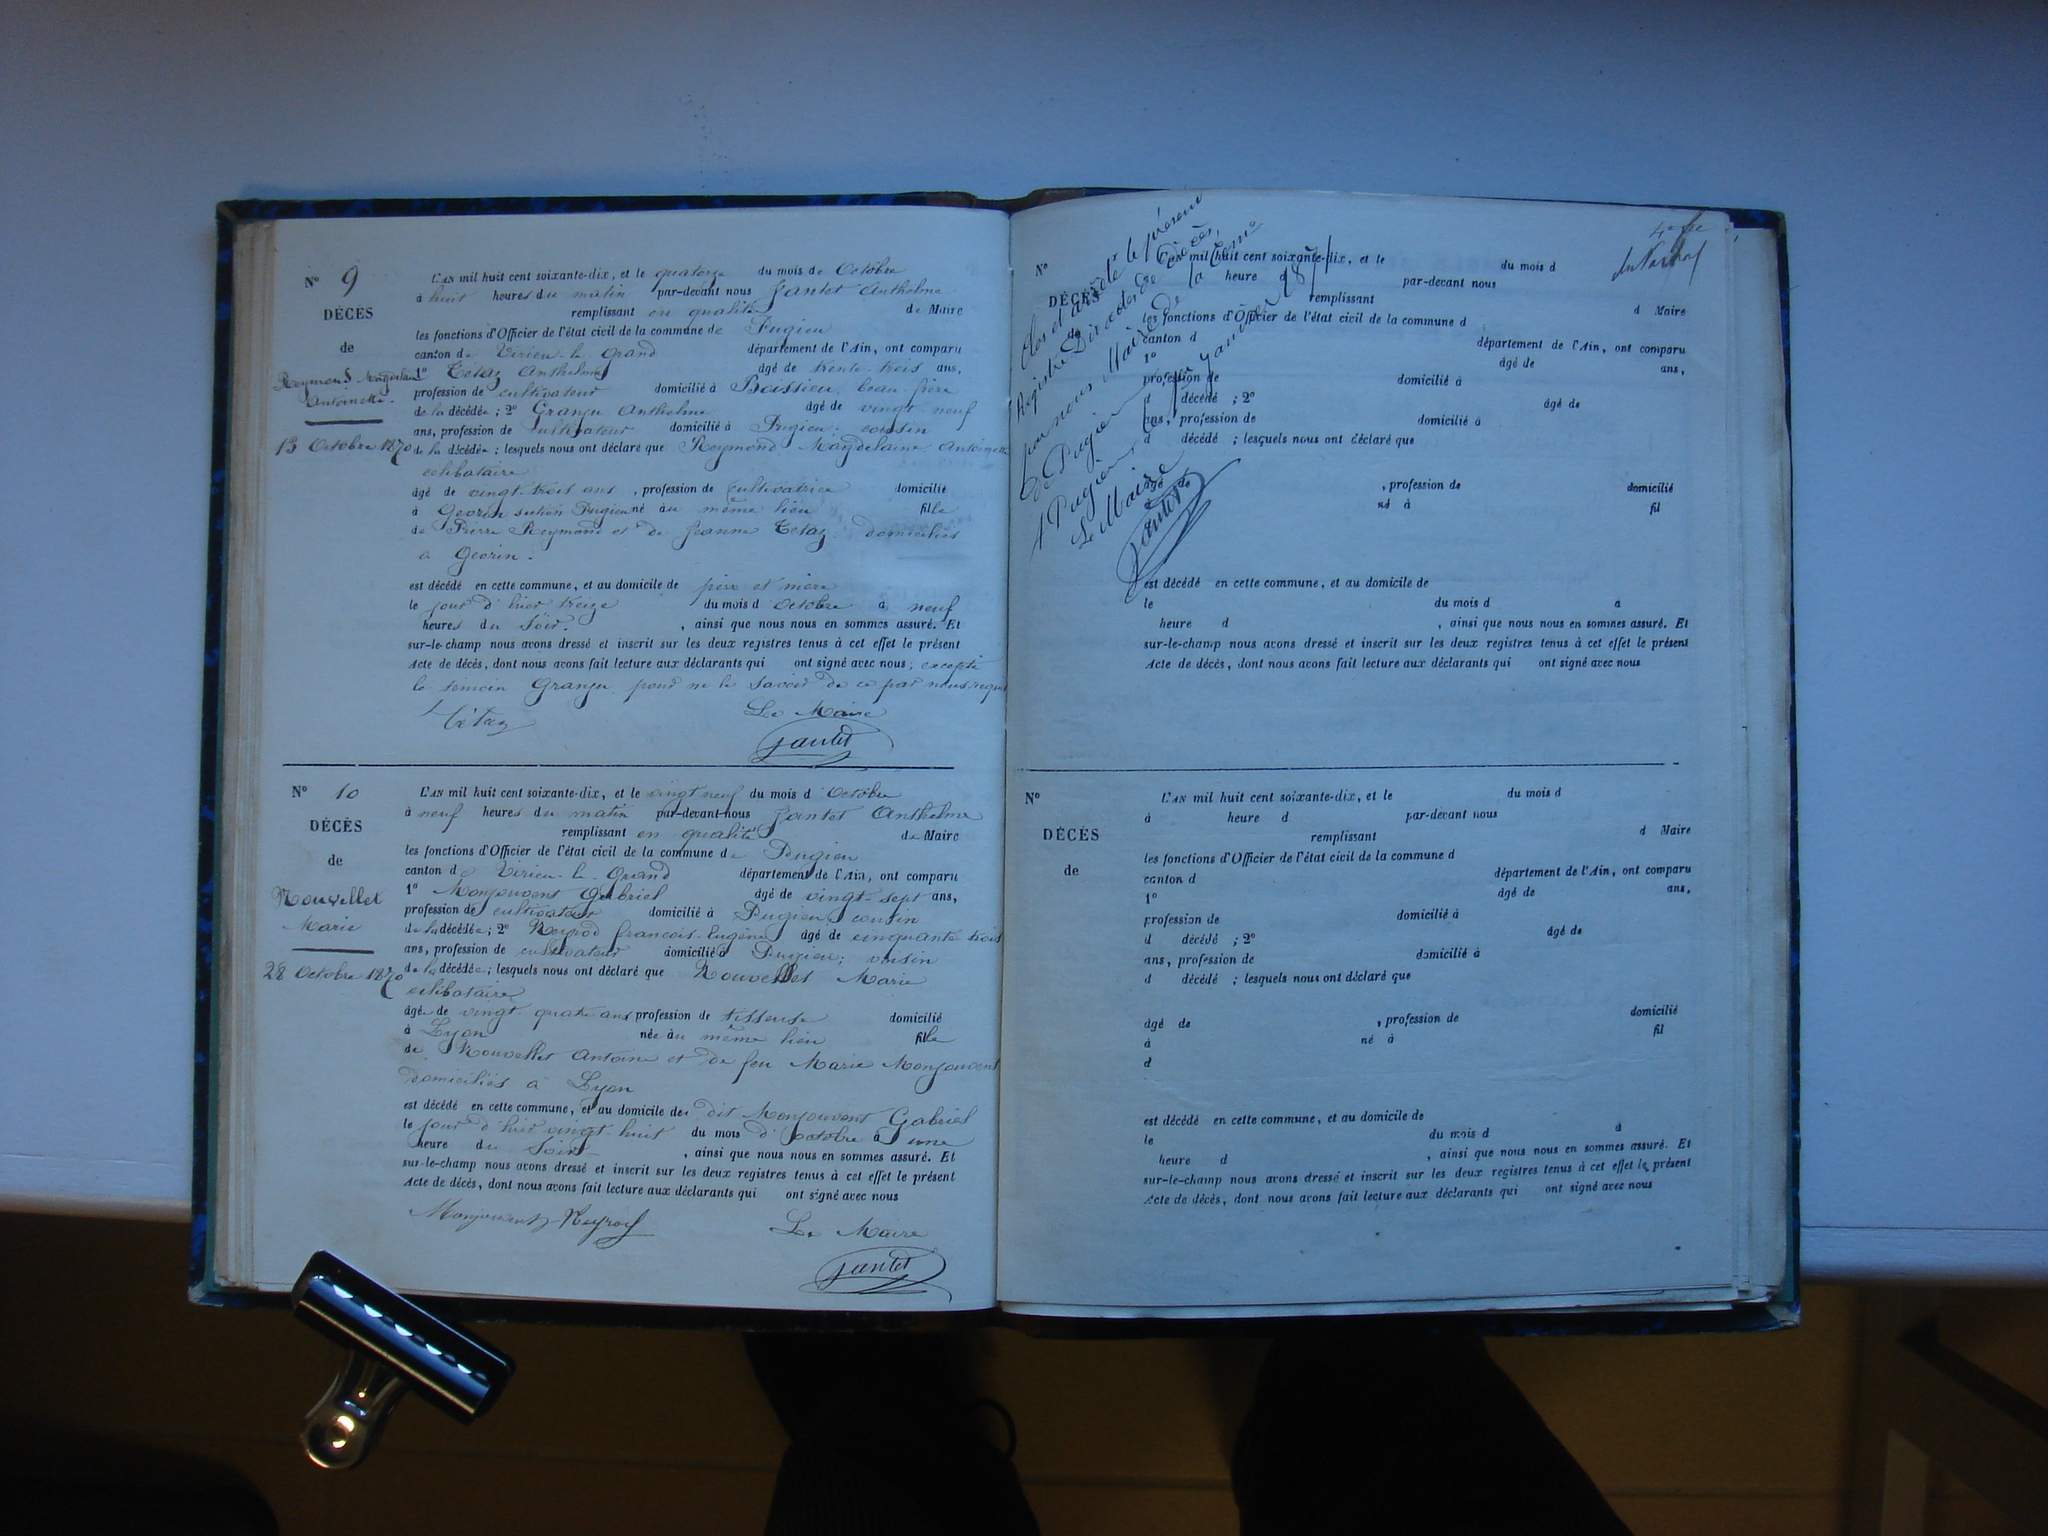 N° 9
DÉCÈS
de
Reymond Magdelaine
Antoinette.
13 Octobre 1870
L'AN mil huit cent soixante-dix, et le quatorze du mois de Octobre
à huit heures du matin par-devant nous Jantet Anthelme
remplissant en qualité de Maire
les fonctions d'Officier de l'état civil de la commune de Pugieu
canton de Virieu-le-Grand département de l'Ain, ont comparu
1° Tetaz Anthelme âgé de trente trois ans,
profession de cultivateur domicilié à Boissieu, beau-frère
de la décédée ; 2° Granju Anthelme âgé de vingt neuf
ans, profession de cultivateur domicilié à Pugieu, cousin
de la décédée ; lesquels nous ont déclaré que Reymond Magdelaine Antoinette
célibataire
âgé de vingt-trois ans , profession de cultivatrice domicilié
à Georin section Pugieu né au même lieu fille
de Pierre Reymond et de Jeanne Tetaz domiciliés
à Georin.
est décédé en cette commune, et au domicile de père et mère
le jour d'hier treize du mois d'octobre à neuf
heures du soir. , ainsi que nous nous en sommes assuré. Et
sur-le-champ nous avons dressé et inscrit sur les deux registres tenus à cet effet le présent
Acte de décès, dont nous avons fait lecture aux déclarants qui ont signé avec nous, excepté
le témoin Granju pour ne le savoir de ce par nous requis
Tétaz Le Maire
Jantet
N° 10
DÉCÈS
de
Nouvellet
Marie
28 Octobre 1870
L'AN mil huit cent soixante-dix, et le vingt neuf du mois d'Octobre
à neuf heures du matin par-devant nous Jantet Anthelme
remplissant en qualité de Maire
les fonctions d'Officier de l'état civil de la commune de Pugieu
canton de Virieu-le-Grand département de l'Ain, ont comparu
1° Monjouvent Gabriel âgé de vingt-sept ans,
profession de cultivateur domicilié à Pugieu, cousin
de la décédée ; 2° Neyrod François-Eugène âgé de cinquante trois
ans, profession de cultivateur domicilié à Pugieu; voisin
de la décédée ; lesquels nous ont déclaré que Nouvellet Marie
célibataire
âgée de vingt quatre ans profession de tisseuse domicilié
à Lyon née au même lieu fille
de Nouvellet Antoine et de feu Marie Monjouvent
domiciliés à Lyon
est décédé en cette commune, et au domicile de dit Monjouvent Gabriel
le jour d'hier vingt-huit du mois d'octobre à une
heure du soir , ainsi que nous nous en sommes assuré. Et
sur-le-champ nous avons dressé et inscrit sur les deux registres tenus à cet effet le présent
Acte de décès, dont nous avons fait lecture aux déclarants qui ont signé avec nous
Monjouvent Neyrod Le Maire
Jantet
Clos et arrêté le présent
Registre de décès,
par nous Maire de la Com.ne
de Pugieu
à Pugieu, janvier 1871
Le Maire
Jantet
N°
DÉCÈS
de
L'AN mil huit cent soixante-dix, et le du mois d
heure d par-devant nous
remplissant d Maire
les fonctions d'Officier de l'état civil de la commune d
canton d département de l'Ain, ont comparu
1° âgé de ans,
profession de domicilié à
d décédé ; 2° âgé de
ans, profession de domicilié à
d décédé ; lesquels nous ont déclaré que
, profession de domicilié
né à fil
est décédé en cette commune, et au domicile de
le du mois d à
heure d , ainsi que nous nous en sommes assuré. Et
sur-le-champ nous avons dressé et inscrit sur les deux registres tenus à cet effet le présent
Acte de décès, dont nous avons fait lecture aux déclarants qui ont signé avec nous
N°
DÉCÈS
de
L'AN mil huit cent soixante-dix, et le du mois d
à heure d par-devant nous
remplissant d Maire
les fonctions d'Officier de l'état civil de la commune d
canton d département de l'Ain, ont comparu
1° âgé de ans,
profession de domicilié à
d décédé ; 2° âgé de
ans, profession de domicilié à
d décédé ; lesquels nous ont déclaré que
âgé de , profession de domicilié
à né à fil
d
est décédé en cette commune, et au domicile de
le du mois d à
heure d , ainsi que nous nous en sommes assuré. Et
sur-le-champ nous avons dressé et inscrit sur les deux registres tenus à cet effet le présent
Acte de décès, dont nous avons fait lecture aux déclarants qui ont signé avec nous